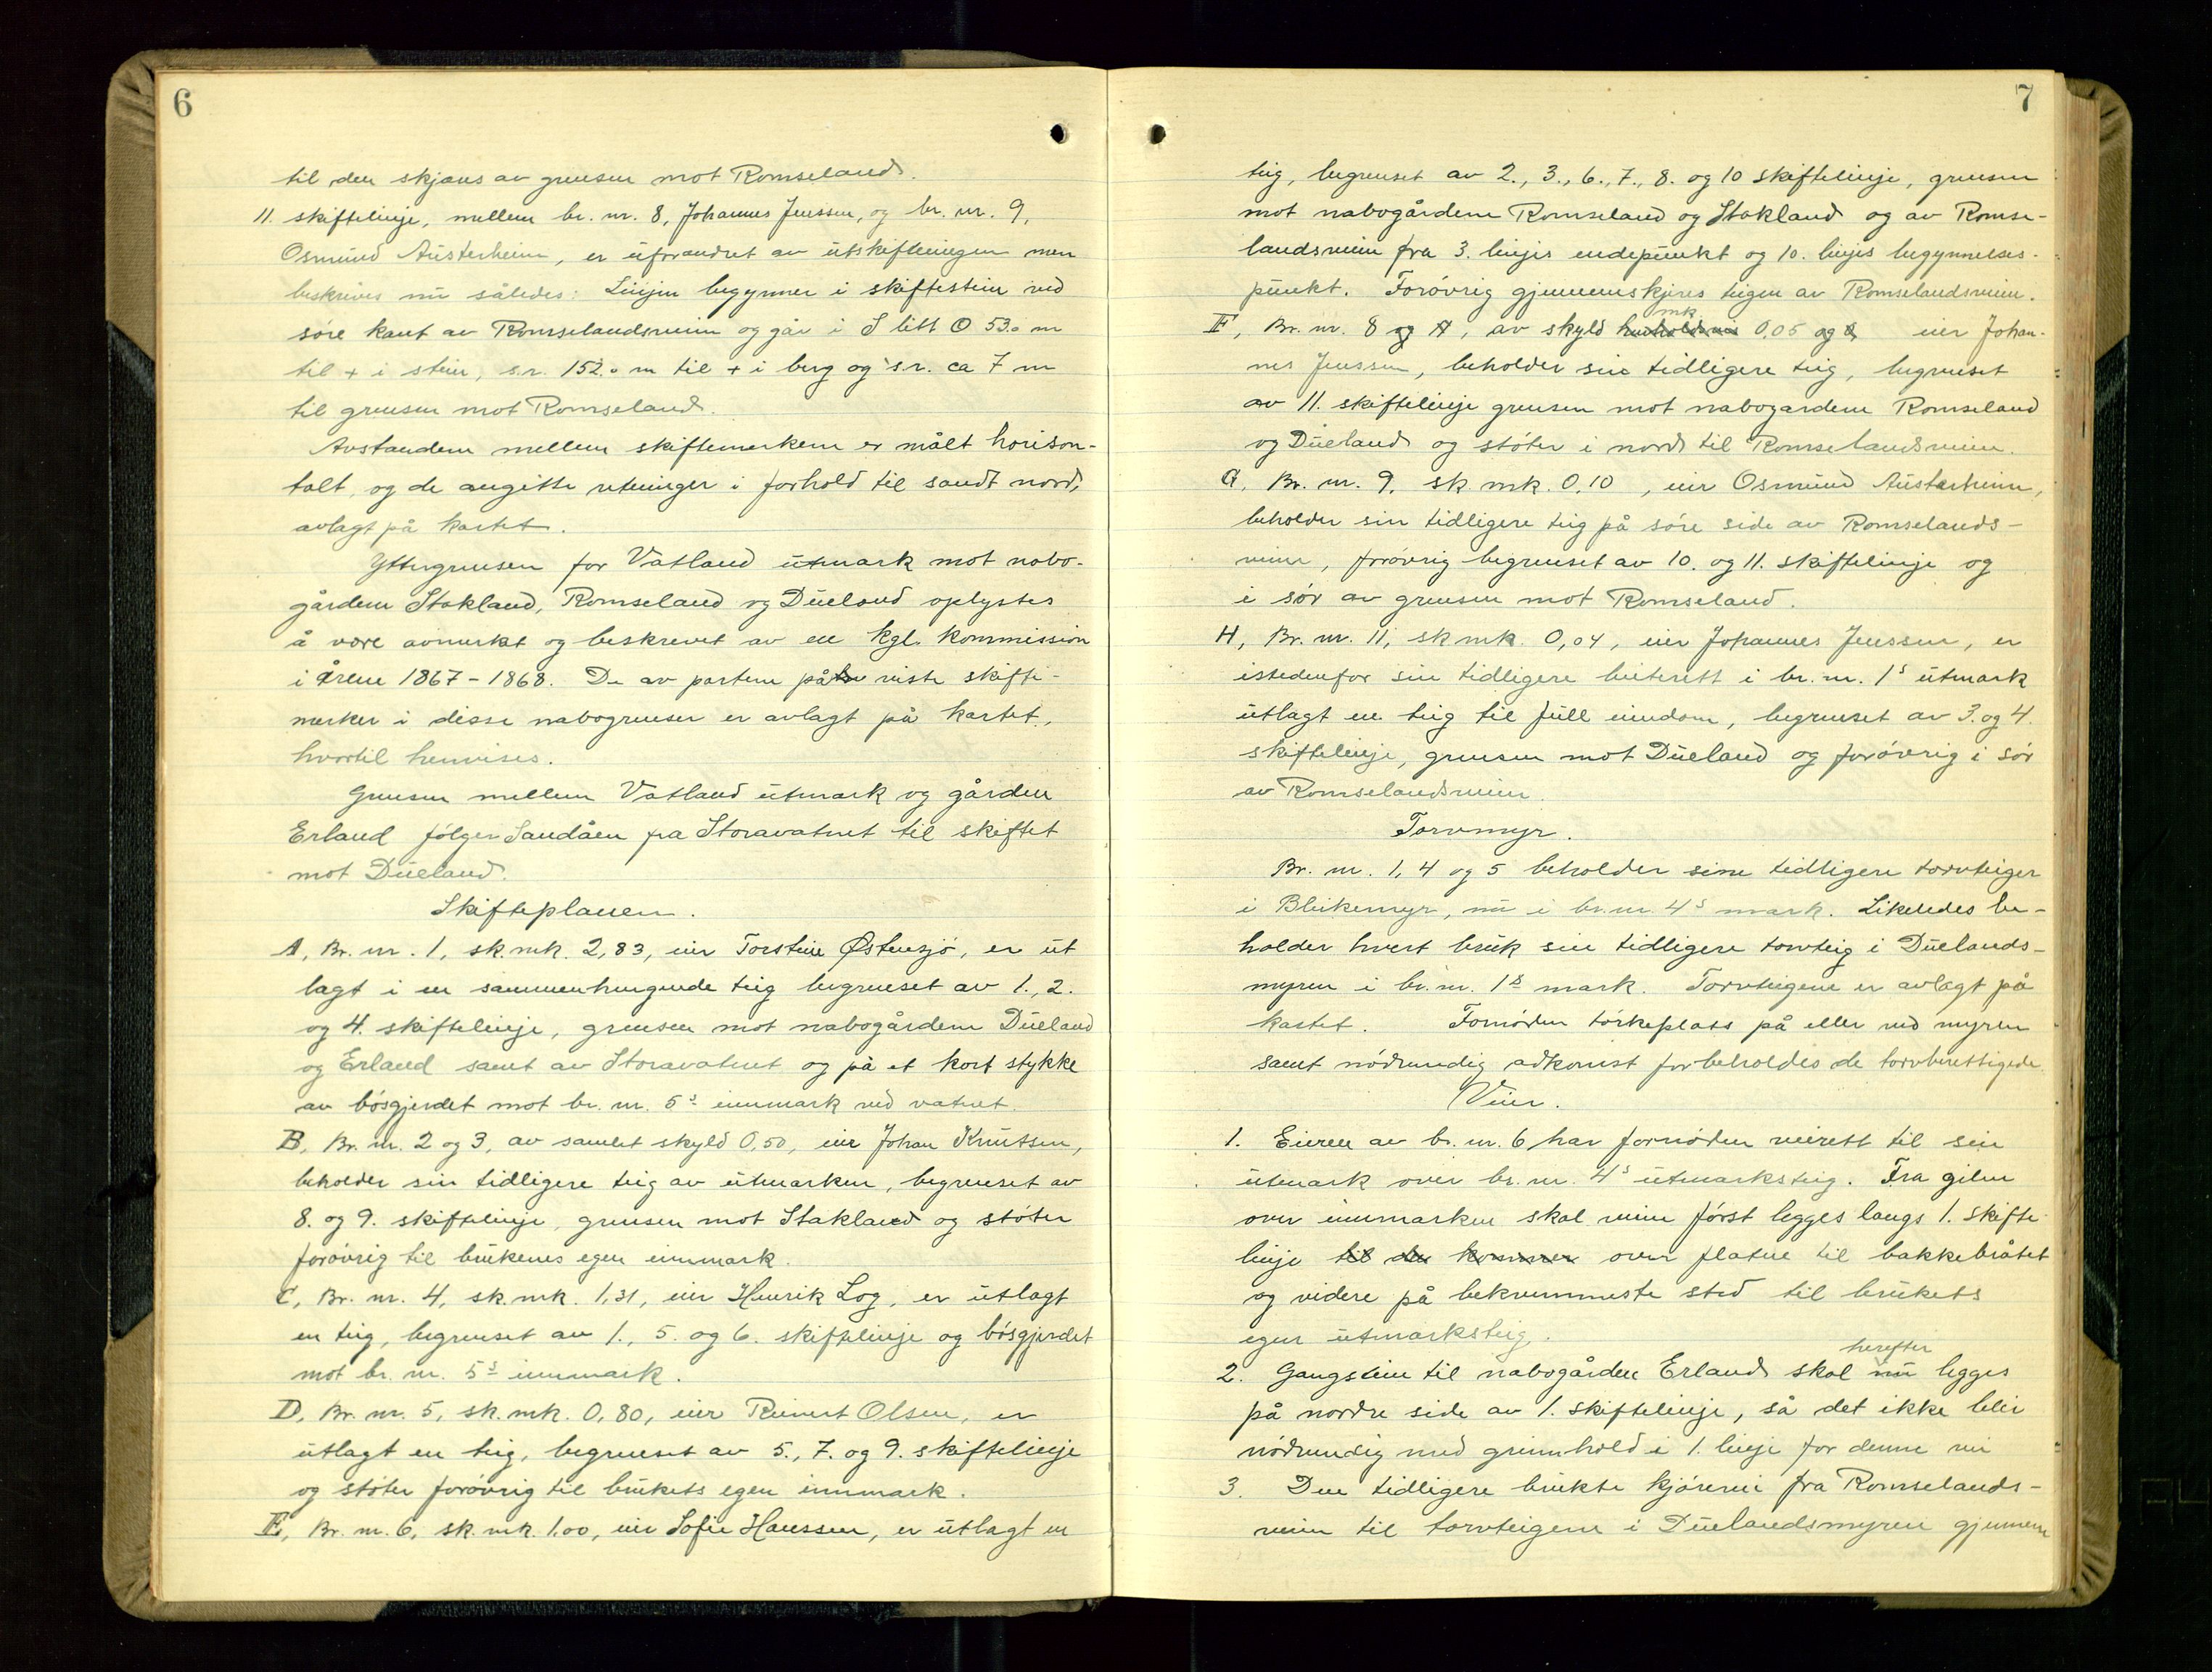 6
til den skjæres av grensen mot Romseland.
11. skiftelinje, mellem br. nr. 8, Johannes Jenssen, og br. nr. 9,
Osmund Austerheim, er uforandret av utskiftningen men
beskrives nu således: Linjen begynner i skiftestein ved
søre kant av Romselandsveien og går i S litt O 53.0 m
til + i stein, s.r. 152.0 m til + i berg og s.r. ca 7 m
til grensen mot Romseland.
Avstandene mellem skiftemerkene er målt horison-
talt, og de angitte retninger i forhold til sandt nord,
avlagt på kartet.
Yttergrensen for Vatland utmark mot nabo-
gårdene Stakland, Romseland og Dueland oplystes
å være avmerket og beskrevet av en kgl. kommission
i årene 1867-1868. De av partene påviste skifte-
merker i disse nabogrenser er avlagt på kartet,
hvortil henvises.
Grensen mellem Vatland utmark og gården
Erland følger Sandåen fra Storavatnet til skiftet
mot Dueland.
Skifteplanen.
A, Br. nr. 1, sk.mk. 2,83, eier Torstein Østensjø, er ut
lagt i en sammenhengende teig begrenset av 1., 2.
og 4. skiftelinje, grensen mot nabogårdene Dueland
og Erland samt av Storavatnet og på et kort stykke
av bøsgjerdet mot br. nr. 5s innmark ved vatnet.
B, Br. nr. 2 og 3, av samlet skyld 0,50, eier Johan Knutsen,
beholder sin tidligere teig av utmarken, begrenset av
8. og 9. skiftelinje, grensen mot Stakland og støter
forøvrig til brukenes egen innmark.
C, Br. nr. 4, sk.mk. 1,31, eier Henrik Log, er utlagt
en teig, begrenset av 1., 5. og 6. skiftelinje og bøsgjerdet
mot br. nr. 5s innmark.
D, Br. nr. 5, sk.mk. 0,80, eier Reinert Olsen, er
utlagt en teig, begrenset av 5., 7. og 9. skiftelinje
og støter forøvrig til brukets egen innmark.
E, Br. nr. 6, sk.mk. 1,00, eier Sofie Hanssen, er utlagt en
7
teig, begrenset av 2., 3., 6., 7., 8. og 10 skiftelinje, grensen
mot nabogårdene Romseland og Stakland og av Romse-
landsveien fra 3. linjes endepunkt og 10. linjes begynnelses-
punkt. Forøvrig gjennemskjæres teigen av Romselandsveien.
mk
F, Br. nr. 8 og A, av skyld henholdsvis 0,05 og 0, eier Johan-
nes Jenssen, beholder sin tidligere teig, begrenset
av 11. skiftelinje grensen mot nabogardene Romseland
og Dueland og støter i nord til Romselandsveien.
G, Br. nr. 9, sk. mk. 0,10, eier Osmund Austerheim,
beholder sin tidligere teig på søre side av Romselands-
veien, forøvrig begrenset av 10. og 11. skiftelinje og
i sør av grensen mot Romseland.
H, Br. nr. 11, sk mk. 0,04, eier Johannes Jenssen, er
istedenfor sin tidligere beiterett i br. nr. 1s utmark
utlagt en teig til full eiendom, begrenset av 3. og 4.
skiftelinje, grensen mot Dueland og forøvrig i sør
av Romselandsveien.
Torvmyr.
Br. nr. 1, 4 og 5 beholder sine tidligere torvteiger
i Bleikemyr, nu i br. nr. 4s mark. Likeledes be-
holder hvert bruk sin tidligere torvteig i Duelands-
myren i br. nr. 1s mark. Torvteigene er avlagt på
kartet. Fornøden tørkeplass på eller ved myren
samt nødvendig adkomst forbeholdes de torvberettigede
Veier.
1. Eieren av br. nr. 6 har fornøden veirett til sin
utmark over br. nr. 4s utmarksteig. Fra gilen
over innmarken skal veien først legges langs 1. skifte
linje til den kommer over flatene til bakkebråtet
og videre på bekvemmeste sted til brukets
egen utmarksteig.
herefter
2. Gangstein til nabogården Erland skal nu legges
på nordre side av 1. skiftelinje, så det ikke blir
nødvendig med grinnhold i 1. linje for denne vei
3. Den tidligere brukte kjørevei fra Romselands-
veien til torvteigene i Duelandsmyren gjennem